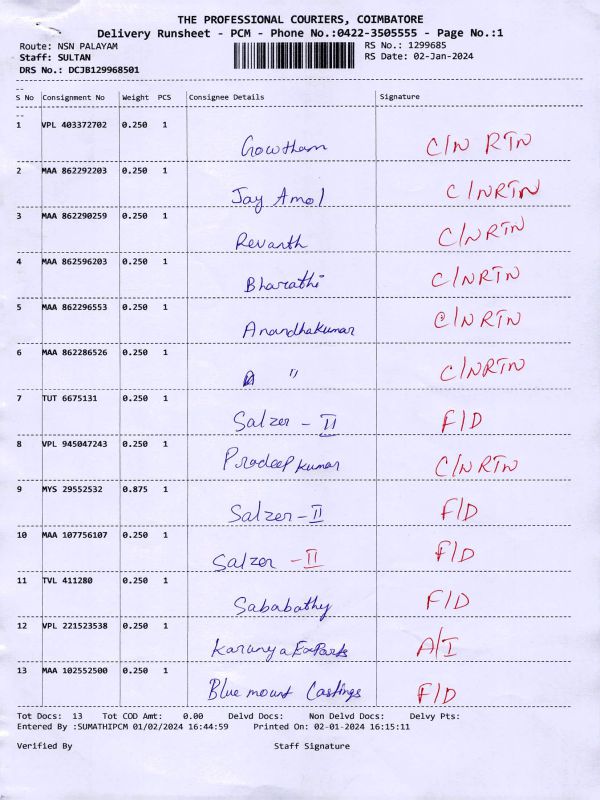 THE PROFESSIONAL COURIERS, COIMBATORE
Delivery Runsheet - PCM - Phone No.:0422-3505555 - Page No.:1
Route: NSN PALAYAM RS No.: 1299685
Staff: SULTAN RS Date: 02-Jan-2024
DRS No.: DCJB129968501
S No Consignment No Weight PCS Consignee Details Signature
1 VPL 403372702 0.250 1 Gowtham C/N RTN
2 MAA 862292203 0.250 1 Jay Amol C/NRTN
3 MAA 862290259 0.250 1 Revanth C/NRTN
4 MAA 862596203 0.250 1 Bharathi C/NRTN
5 MAA 862296553 0.250 1 Anandhakumar C/N RTN
6 MAA 862286526 0.250 1 " C/NRTN
7 TUT 6675131 0.250 1 Salzer - II F/D
8 VPL 945047243 0.250 1 Pradeep kumar C/NRTN
9 MYS 29552532 0.875 1 Salzer - II F/D
10 MAA 107756107 0.250 1 Salzer - II F/D
11 TVL 411280 0.250 1 Sababathy F/D
12 VPL 221523538 0.250 1 Karunya ExPorts A/I
13 MAA 102552500 0.250 1 Blue mount Castings F/D
Tot Docs: 13 Tot COD Amt: 0.00 Delvd Docs: Non Delvd Docs: Delvy Pts:
Entered By :SUMATHIPCM 01/02/2024 16:44:59 Printed On: 02-01-2024 16:15:11
Verified By Staff Signature